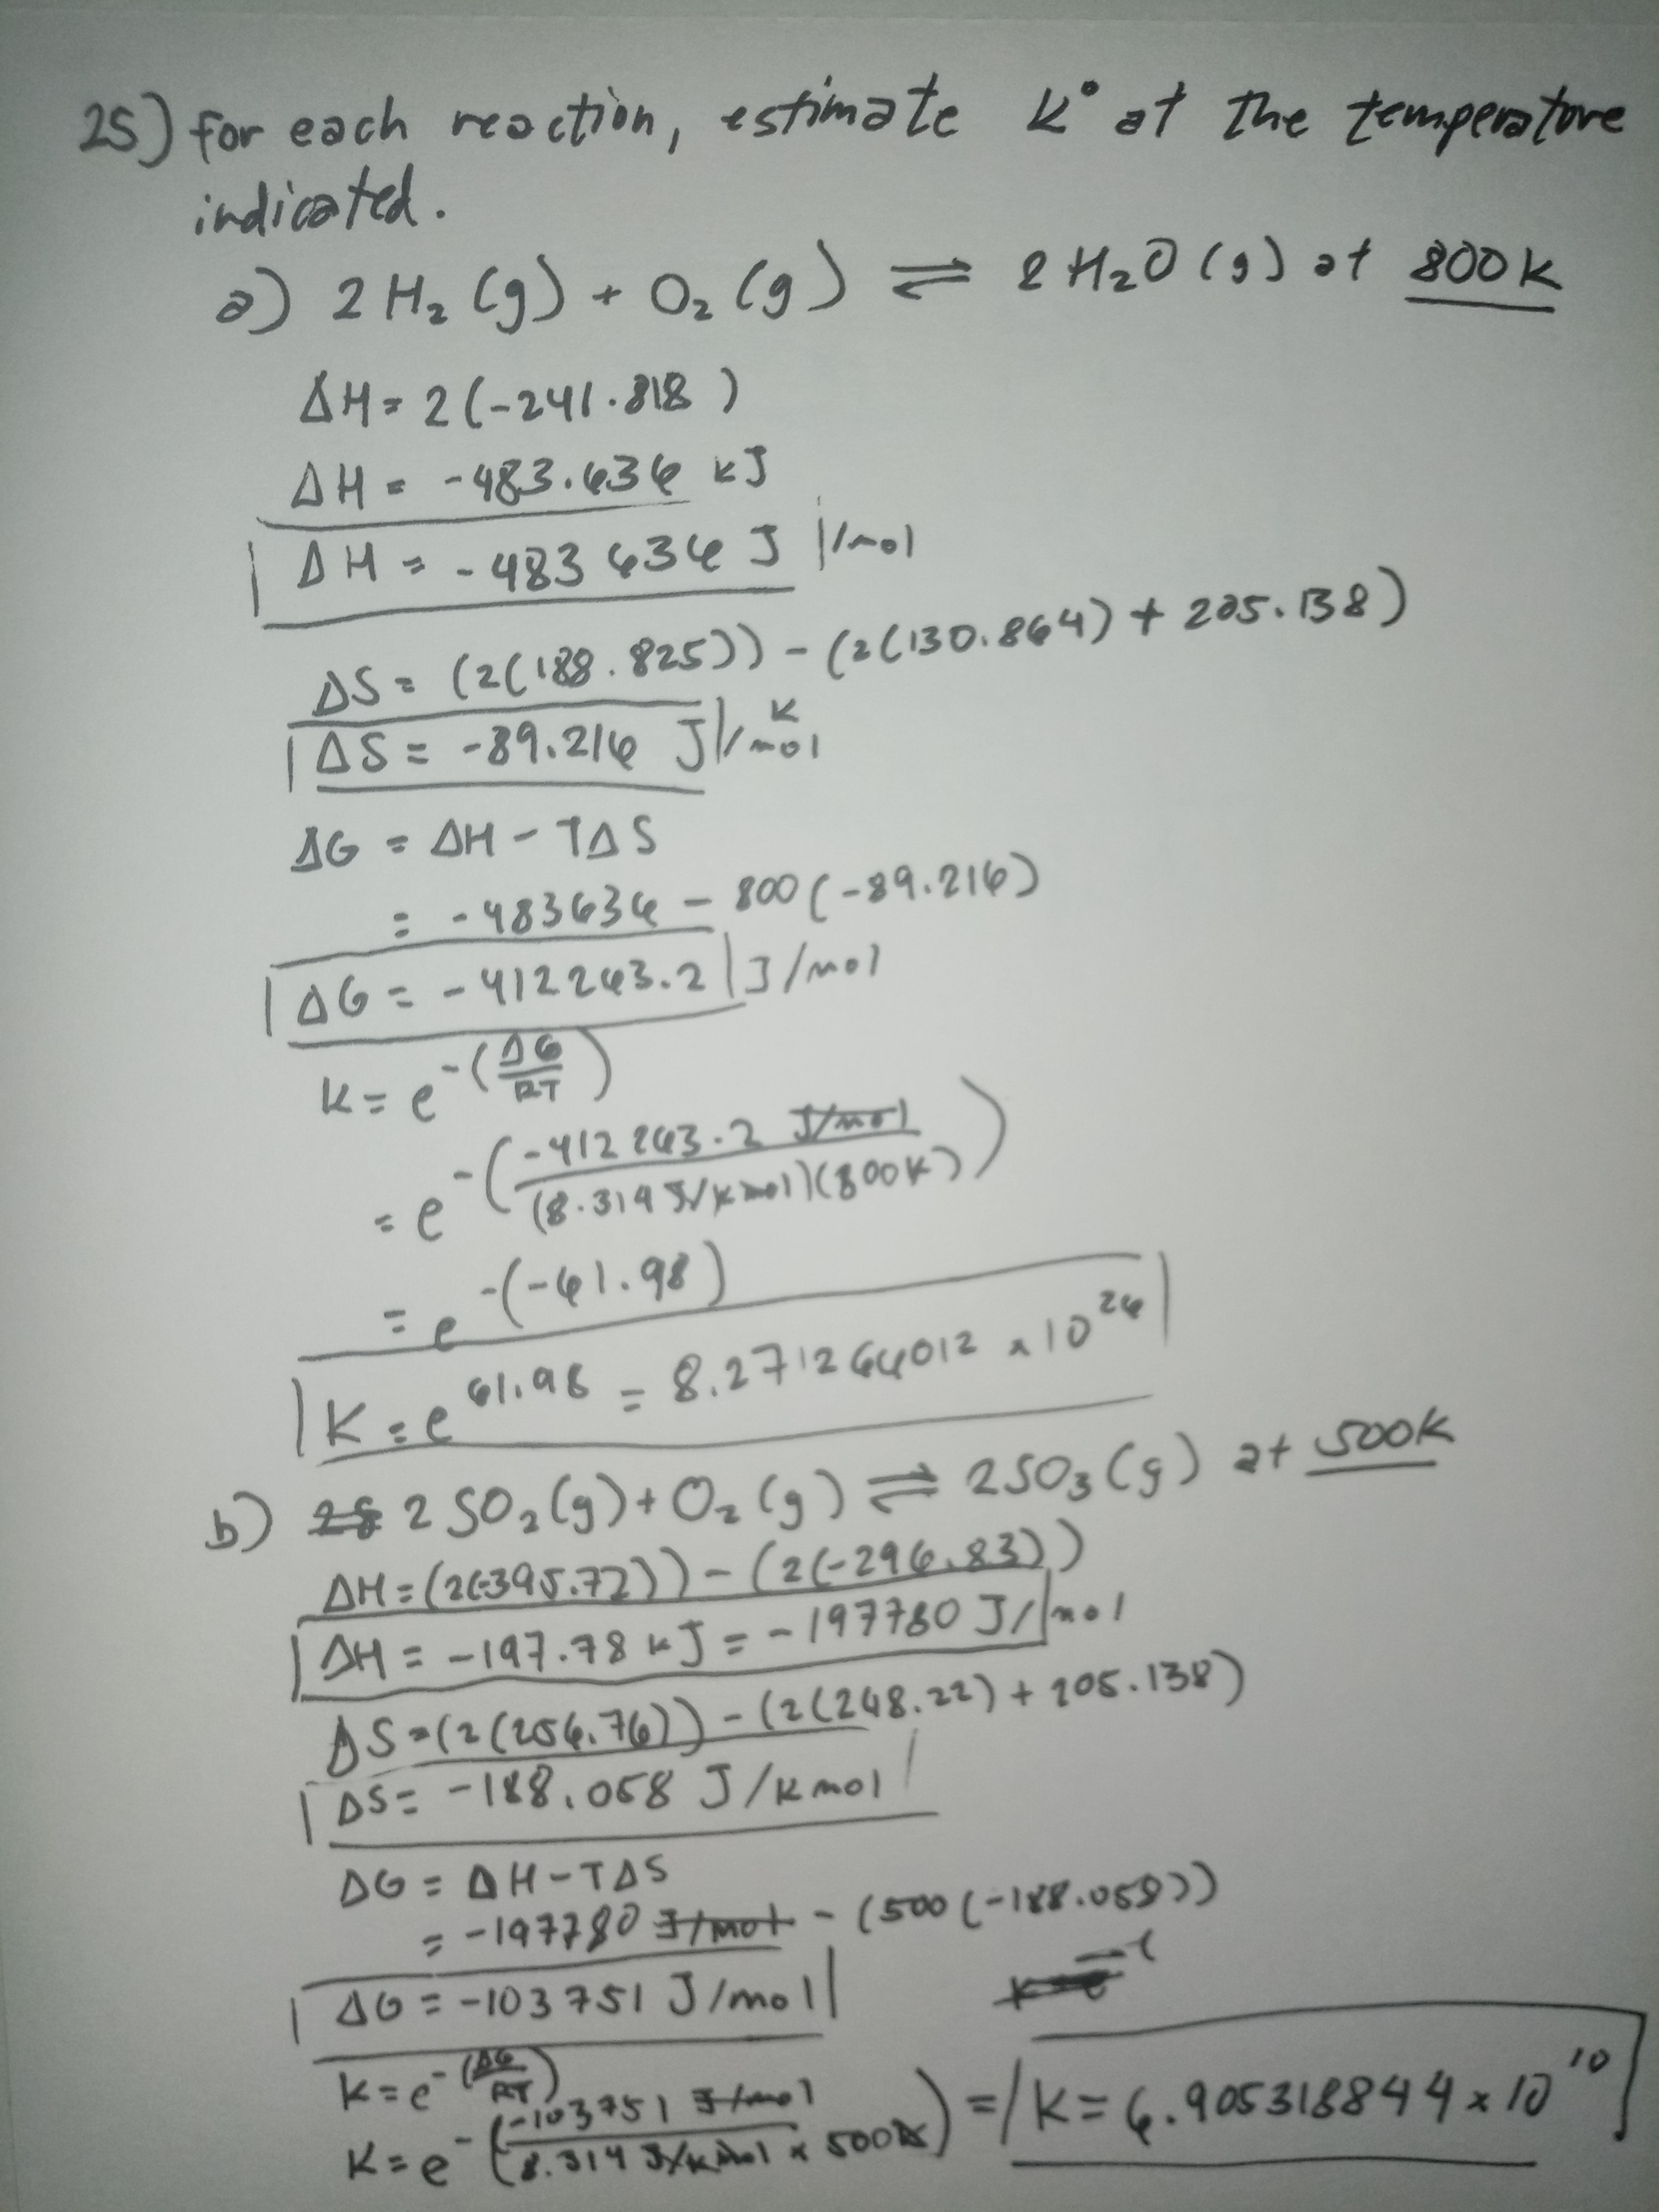 25) for each reaction, estimate K° at the temperature
indicated.
a) 2 H₂ (g) + O₂ (g) ⇌ 2 H₂O (g) at 800 K
ΔH = 2(-241.818)
ΔH = -483.636 kJ
ΔH = -483 636 J /mol
ΔS = (2(188.825)) - (2(130.864) + 205.138)
ΔS = -89.216 J/K mol
ΔG = ΔH - TΔS
= -483636 - 800(-89.216)
ΔG = -412263.2 J/mol
K = e^-(ΔG/RT)
= e^-(-412263.2 J/mol / (8.314 J/K mol)(800K))
= e^-(-61.98)
K = e^61.98 = 8.271264012 x 10^26
b) 2 SO₂(g) + O₂ (g) ⇌ 2SO₃ (g) at 500K
ΔH = (2(-395.72)) - (2(-296.83))
ΔH = -197.78 kJ = -197780 J/mol
ΔS = (2(256.76)) - (2(248.22) + 205.138)
ΔS = -188.058 J/K mol
ΔG = ΔH - TΔS
= -197780 J/mol - (500(-188.058))
ΔG = -103751 J/mol
K = e^-(ΔG/RT)
K = e^-(-103751 J/mol / 8.314 J/K mol x 500K) = K = 6.905318844 x 10^10